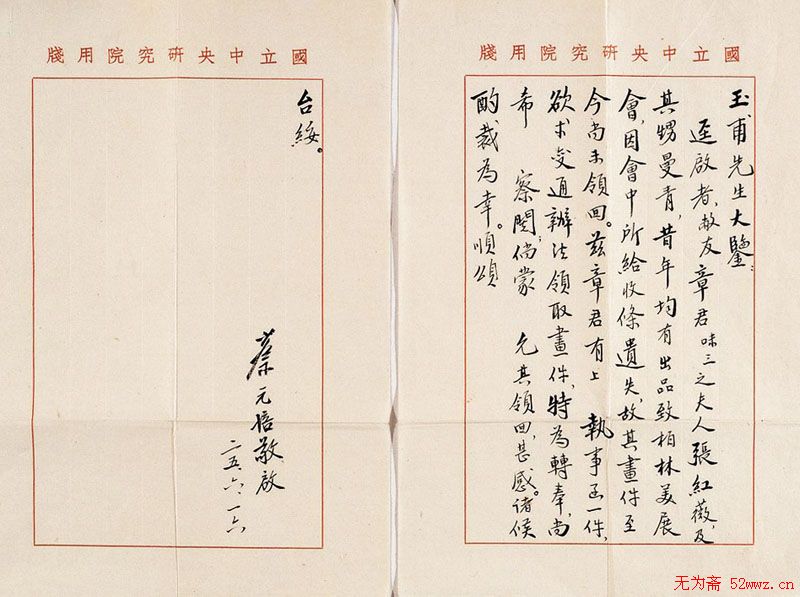 國立中央研究院用牋
玉甫先生大鑒：
逕啟者，敝友章君味三之夫人張紅薇，及
其甥曼青，昔年均有出品致柏林美展
會，因會中所給收條遺失，故其畫件至
今尚未領回。兹章君有上 執事函一件，
欲求變通辦法領取畫件，特為轉奉，尚
希 察閱，倘蒙 允其領回，甚感。諸候
酌裁為幸。順頌
國立中央研究院用牋
台綏。
蔡元培敬啟
二五、六、一六
无为斋 52wwz.cn